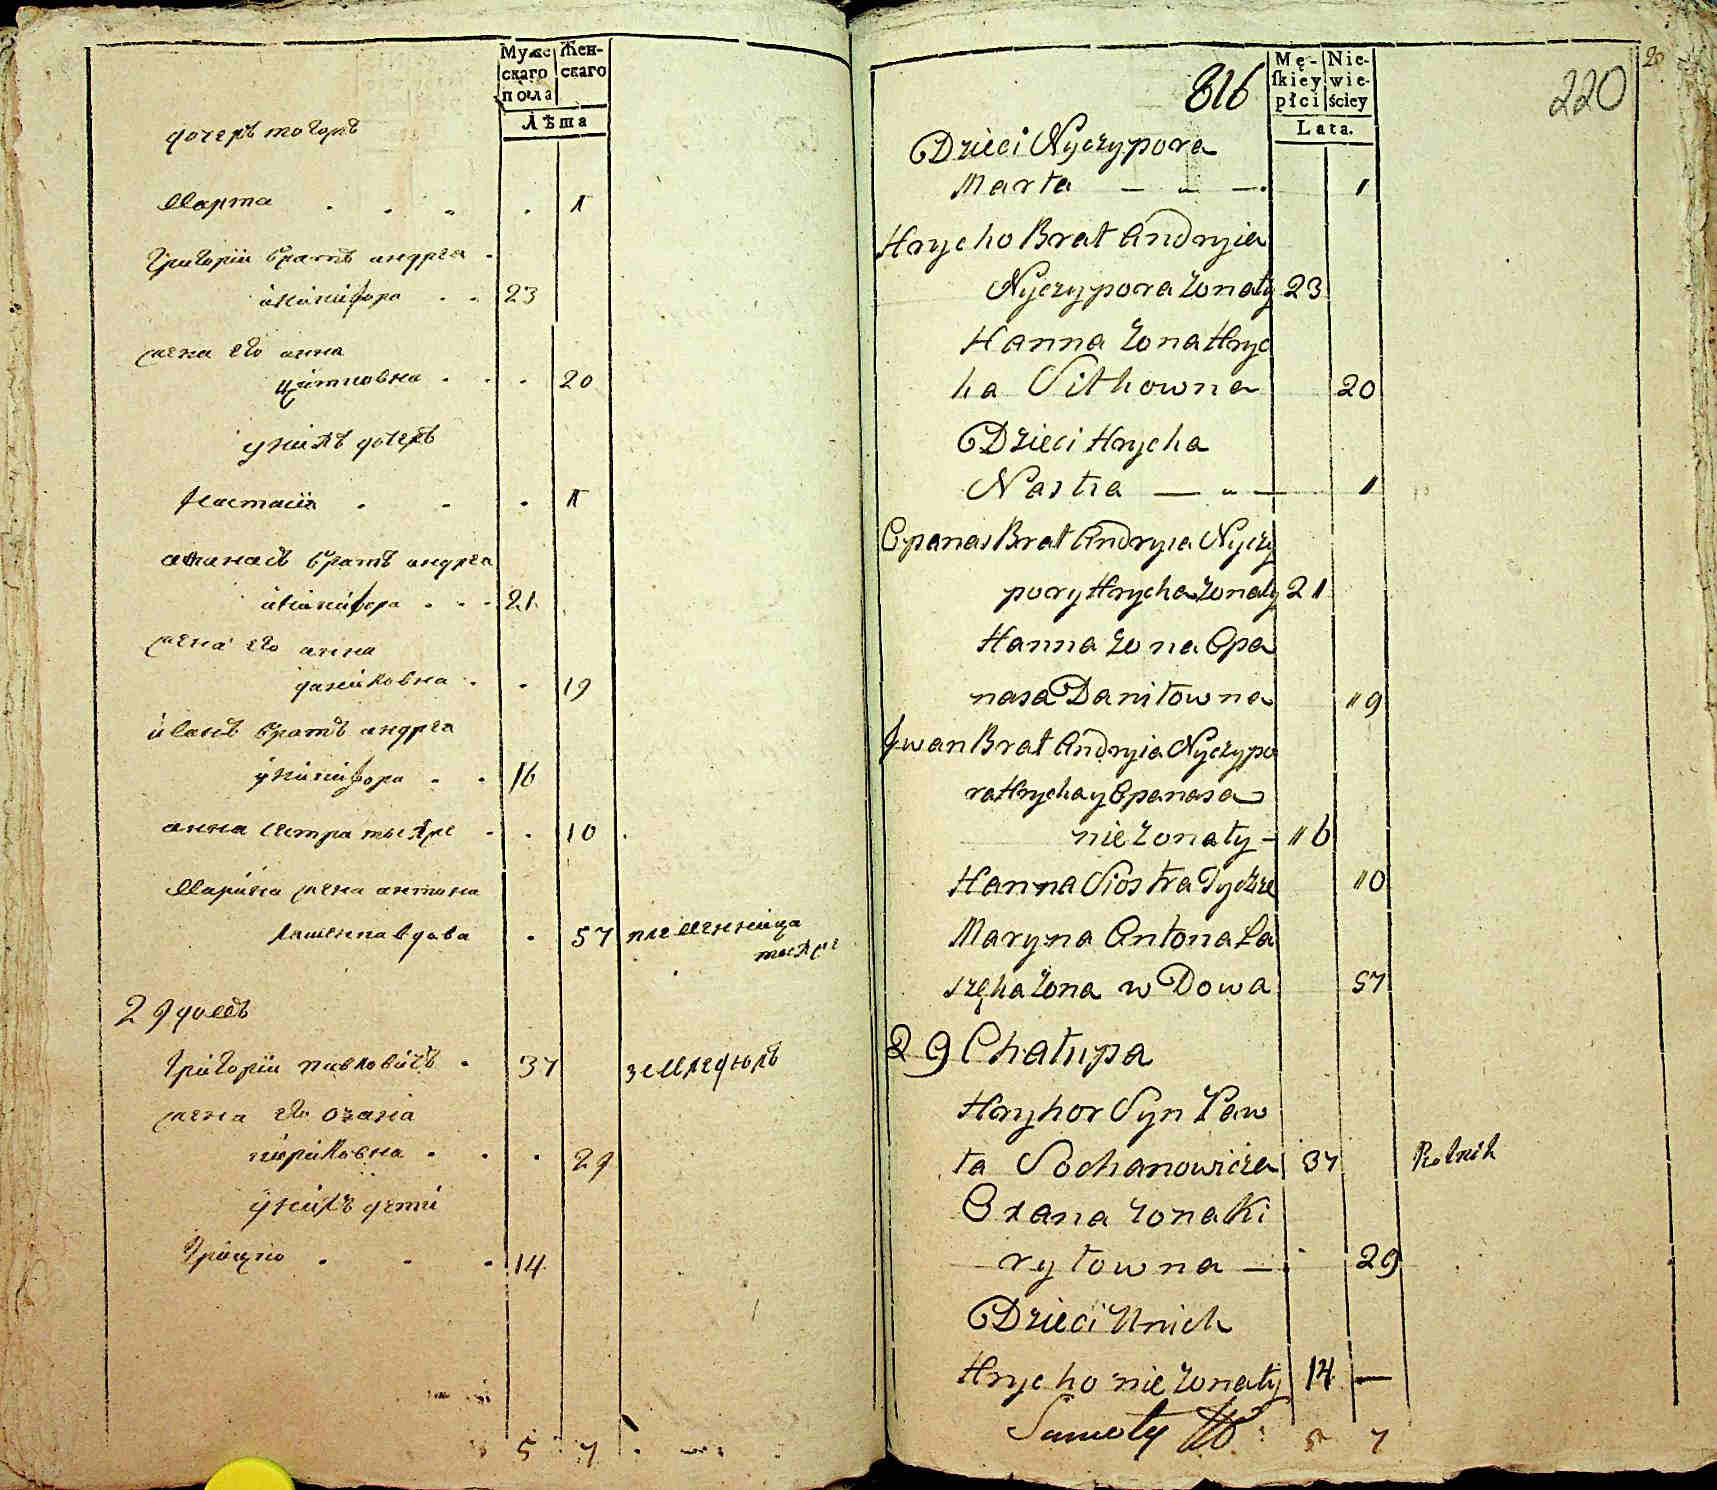 Муже
скаго
пола
Жен-
скаго
Лѣта
дочерь
Марта . . . . 1
Григорій братъ андрея
никифора . . 23
жена его анна
титковна . . . 20
у нихъ дочерь
Настасія . . . 1
афанасъ братъ андрея
никифора . . . 21
жена его анна
даниловна . . 19
иванъ братъ андрея
никифора . . 16
анна сестра тыхже . . 10
Марина жена антона
вдова . 57
29 домъ
Григорій павловичъ . 37 земледѣлъ
жена его озана
кириловна . . . 29
у нихъ дети
Грицко . . . 14
5 7
816
Mę-
skiey
płci
Nie-
wie-
ściey
Lata.
220
Dzieci Nyczypora
Marta — „ — 1
Hrycho Brat Andryia
Nyczypora żonaty 23
Hanna żona Hryc
ha Sithowna 20
Dzieci Hrycha
Nastia — „ — 1
Opanas Brat Andryia Nyczy
pory Hrycha żonaty 21
Hanna żona Opa
nasa Daniłowna 19
Jwan Brat Andryia Nyczypo
ra Hrycha y Opanasa
nie żonaty — 16
Hanna Siostra Tychże 10
Maryna Antona Ła
szęha żona w Dowa 57
29 Chałupa
Hryhor Syn Paw
ła Sochanowicza 37 Rolnik
Oxana żona Ki
ryłowna — 29
Dzieci Unich
Hrycho nie żonaty 14 —
5 7